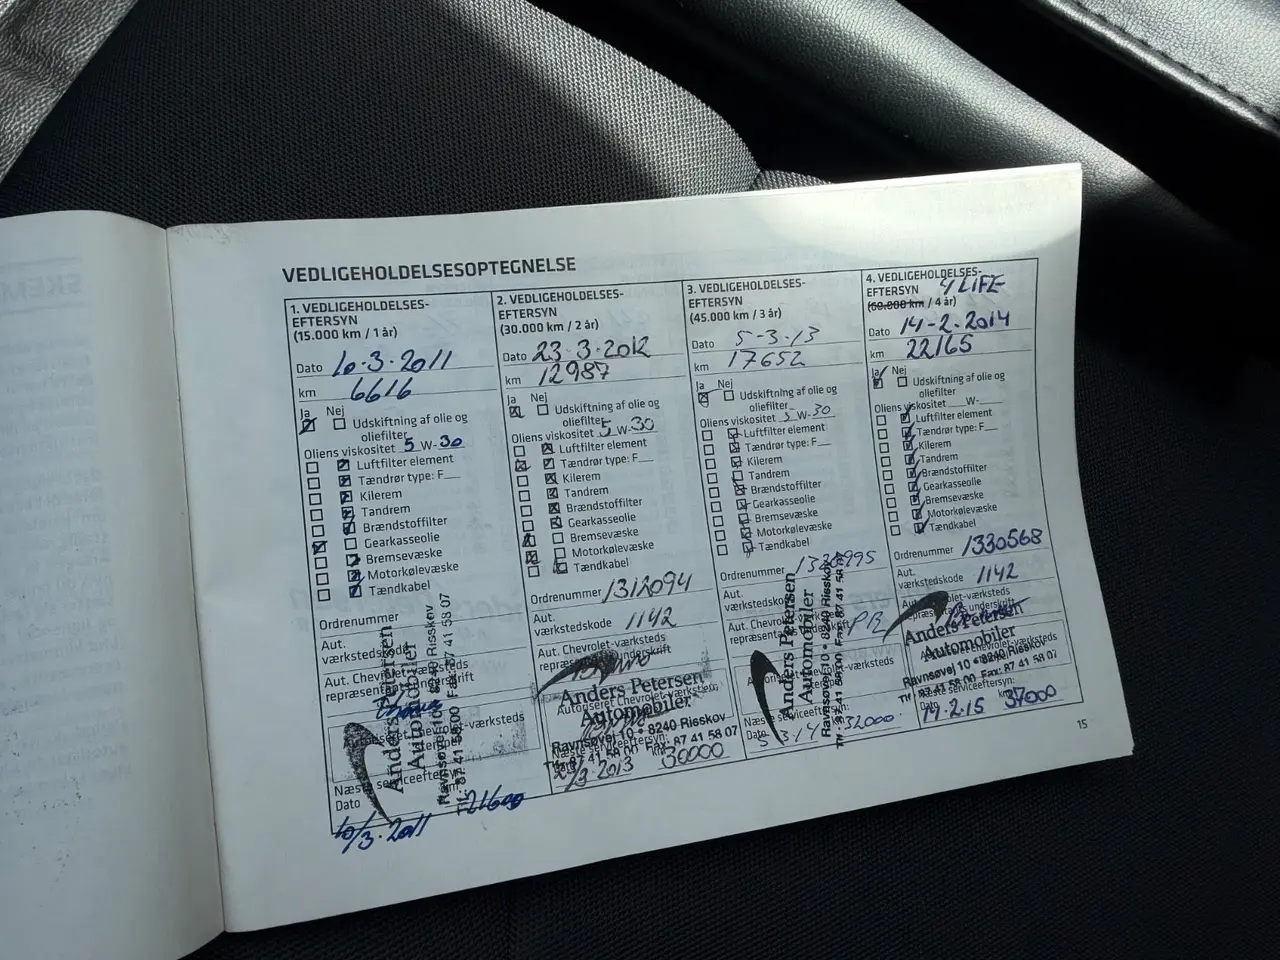 VEDLIGEHOLDELSESOPTEGNELSE
1. VEDLIGEHOLDELSES-
EFTERSYN
(15.000 km / 1 år)
Dato 10·3·2011
km 6616
Ja Nej
Udskiftning af olie og
oliefilter
Oliens viskositet 5 W-30
Luftfilter element
Tændrør type: F
Kilerem
Tandrem
Brændstoffilter
Gearkasseolie
Bremsevæske
Motorkølevæske
Tændkabel
Ordrenummer
Aut.
værkstedskode
Aut. Chevrolet-værksteds
repræsentants underskrift
Anders Petersen
Automobiler
Ravnsøvej 10 • 8240 Risskov
Tlf.: 87 41 58 00 Fax: 87 41 58 07
Næste serviceeftersyn:
Dato
10/3·2011 21600
2. VEDLIGEHOLDELSES-
EFTERSYN
(30.000 km / 2 år)
Dato 23·3·2012
km 12987
Ja Nej
Udskiftning af olie og
oliefilter
Oliens viskositet 5 W-30
Luftfilter element
Tændrør type: F
Kilerem
Tandrem
Brændstoffilter
Gearkasseolie
Bremsevæske
Motorkølevæske
Tændkabel
Ordrenummer 1312094
Aut.
værkstedskode 1142
Aut. Chevrolet-værksteds
repræsentants underskrift
Autoriseret Chevrolet-værksteds
Anders Petersen
Automobiler
Ravnsøvej 10 • 8240 Risskov
Tlf.: 87 41 58 00 Fax: 87 41 58 07
Næste serviceeftersyn:
Dato 23/3·2013 30000
3. VEDLIGEHOLDELSES-
EFTERSYN
(45.000 km / 3 år)
Dato 5-3-13
km 17652
Ja Nej
Udskiftning af olie og
oliefilter
Oliens viskositet 5 W-30
Luftfilter element
Tændrør type: F
Kilerem
Tandrem
Brændstoffilter
Gearkasseolie
Bremsevæske
Motorkølevæske
Tændkabel
Ordrenummer
Aut.
værkstedskode
Aut. Chevrolet-værksteds
repræsentants underskrift PR
Anders Petersen
Automobiler
Ravnsøvej 10 • 8240 Risskov
Tlf.: 87 41 58 00 Fax: 87 41 58 07
Næste serviceeftersyn:
Dato 5-3-14 32000
4. VEDLIGEHOLDELSES-
EFTERSYN 4 LIFE
(60.000 km / 4 år)
Dato 14-2-2014
km 22165
Ja Nej
Udskiftning af olie og
oliefilter
Oliens viskositet W-
Luftfilter element
Tændrør type: F
Kilerem
Tandrem
Brændstoffilter
Gearkasseolie
Bremsevæske
Motorkølevæske
Tændkabel
Ordrenummer 1330568
Aut.
værkstedskode 1142
Aut. Chevrolet-værksteds
repræsentants underskrift
Anders Petersen
Automobiler
Ravnsøvej 10 • 8240 Risskov
Tlf.: 87 41 58 00 Fax: 87 41 58 07
Næste serviceeftersyn:
14-2-15 37000
15